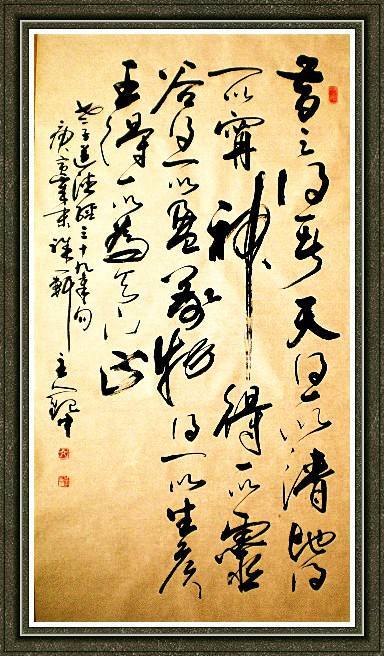 昔之得一者天得一以清地得
一以寧神得一以靈
谷得一以盈萬物得一以生侯
王得一以為天下正
老子道德經三十九章句
庚寅歲末軒主人